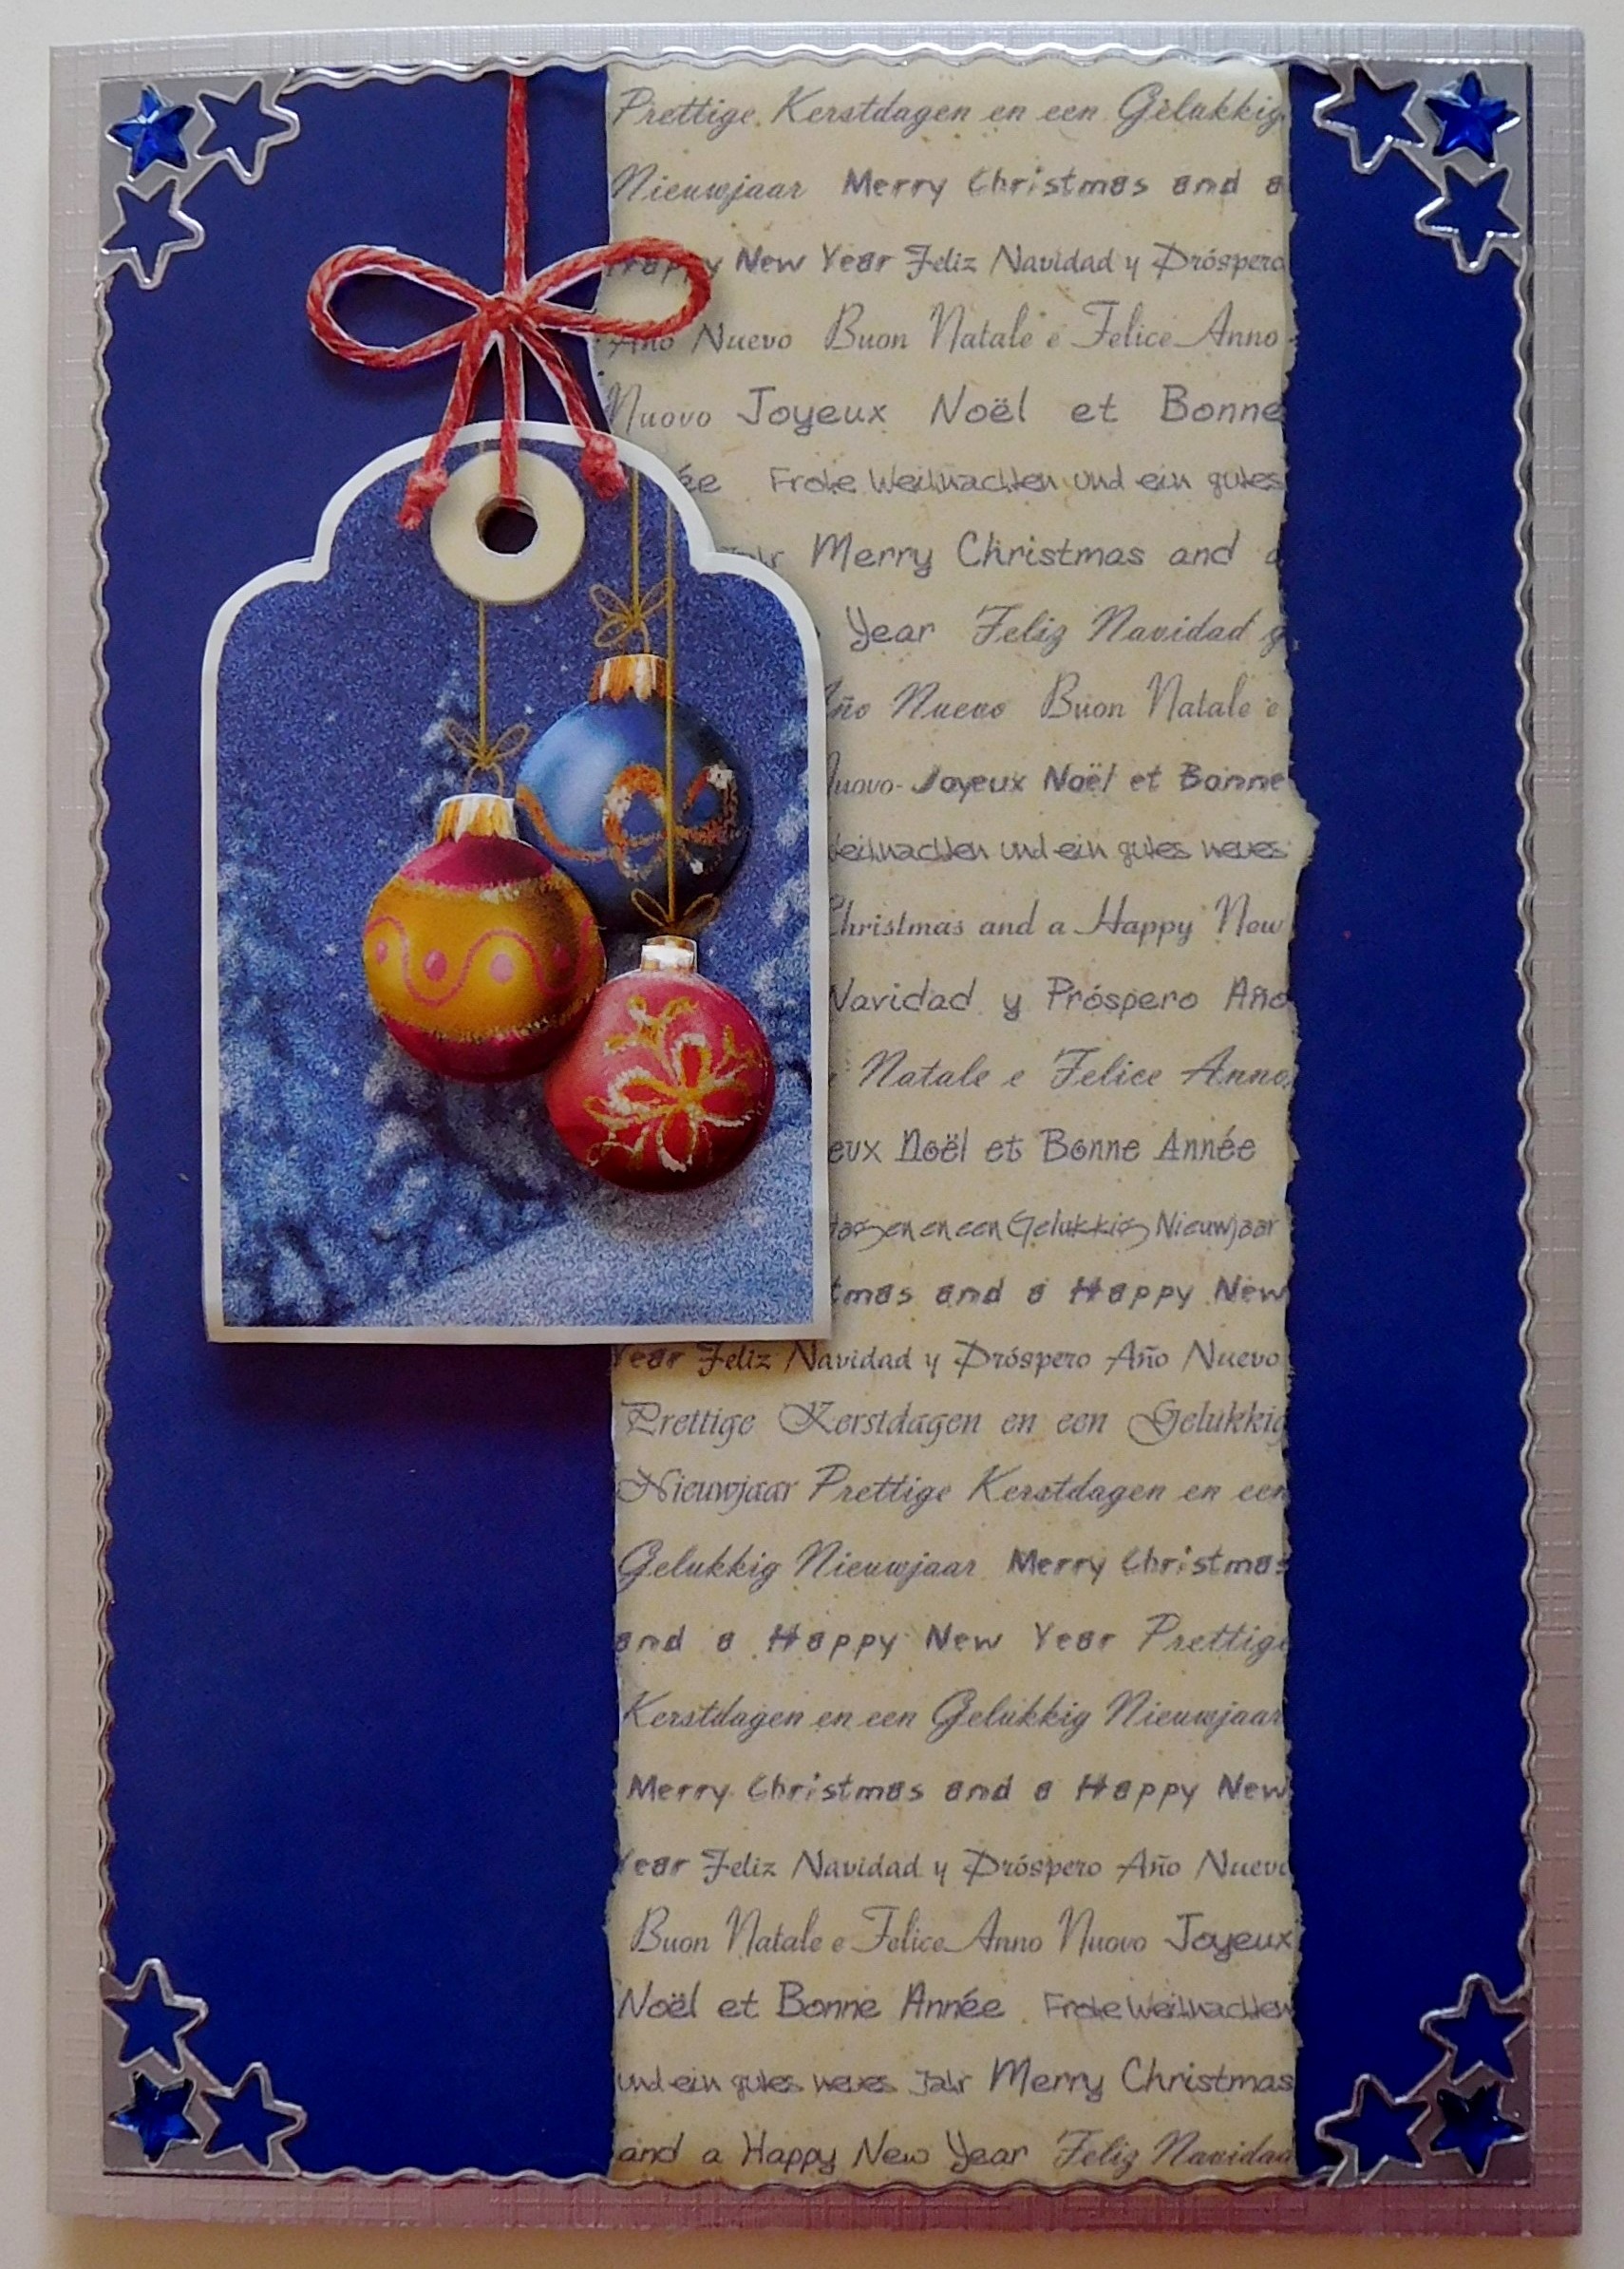 Prettige Kerstdagen en een Gelukkig
Nieuwjaar Merry Christmas and a
Happy New Year Feliz Navidad y Próspero
Año Nuevo Buon Natale e Felice Anno
Nuovo Joyeux Noël et Bonne
ée Frohe Weihnachten und ein gutes
Jahr Merry Christmas and a
Year Feliz Navidad y
Año Nuevo Buon Natale e
Nuovo Joyeux Noël et Bonne
Weihnachten und ein gutes neues
Christmas and a Happy New
Navidad y Próspero Año
Natale e Felice Anno
eux Noël et Bonne Année
dagen en een Gelukkig Nieuwjaar
tmas and a Happy New
Year Feliz Navidad y Próspero Año Nuevo
Prettige Kerstdagen en een Gelukkig
Nieuwjaar Prettige Kerstdagen en een
Gelukkig Nieuwjaar Merry Christmas
and a Happy New Year Prettige
Kerstdagen en een Gelukkig Nieuwjaar
Merry Christmas and a Happy New
Year Feliz Navidad y Próspero Año Nuevo
Buon Natale e Felice Anno Nuovo Joyeux
Noël et Bonne Année Frohe Weihnachten
und ein gutes neues Jahr Merry Christmas
and a Happy New Year Feliz Navidad